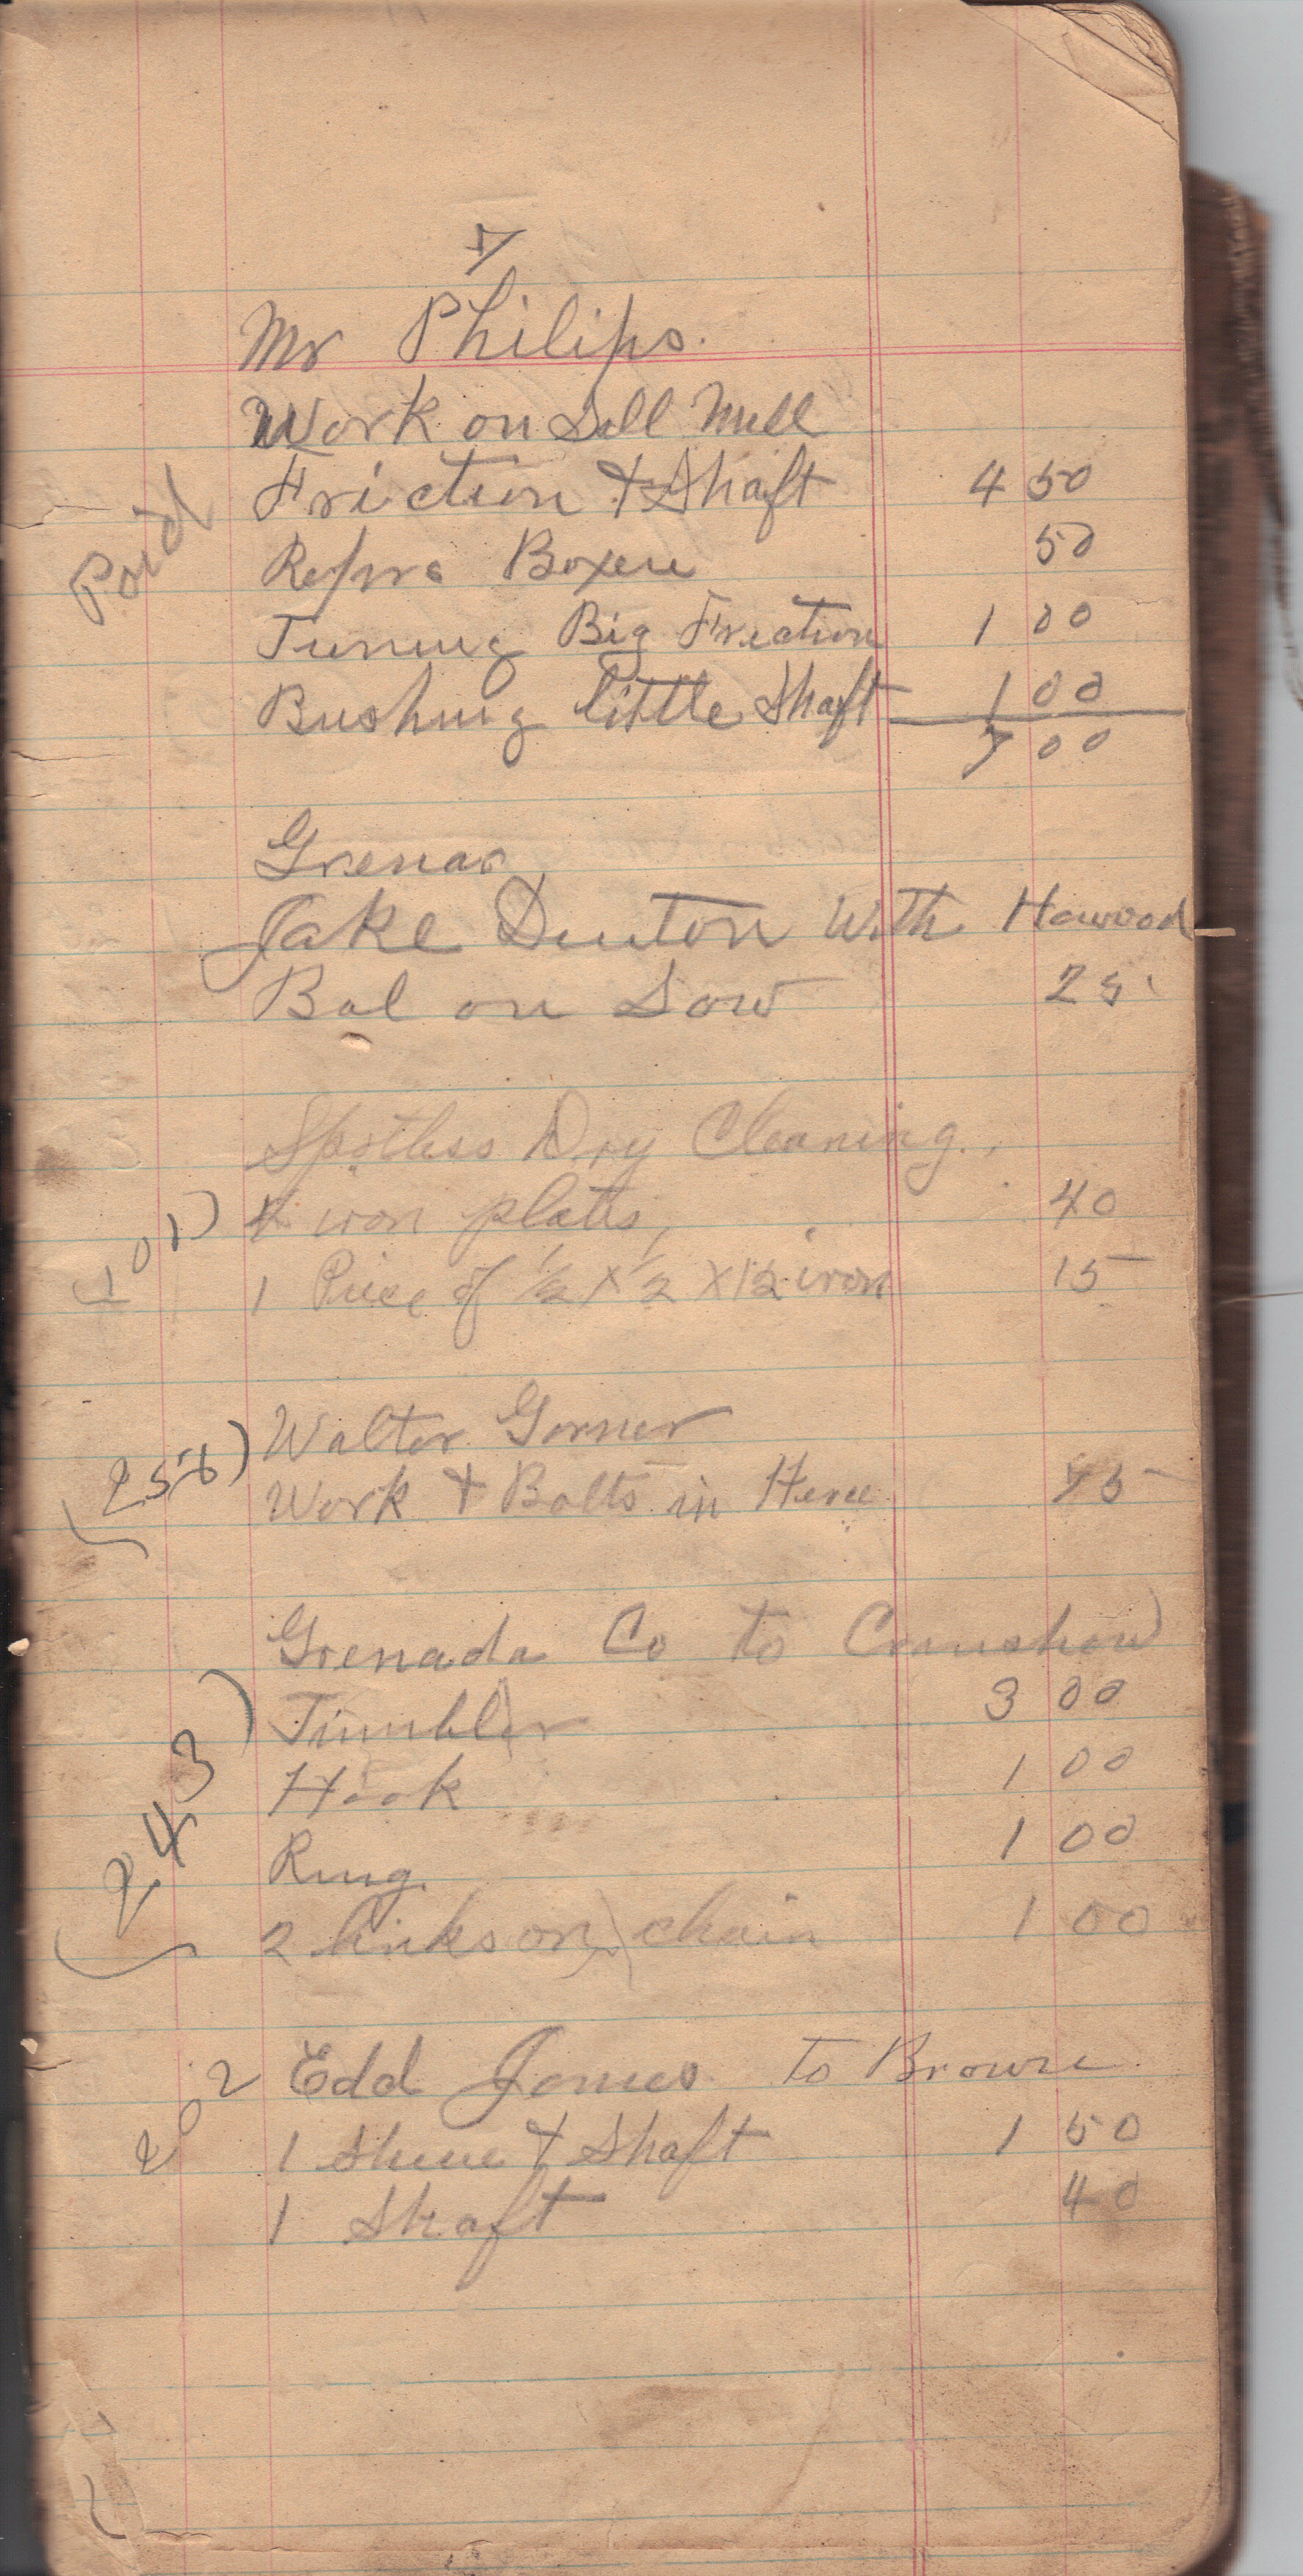 Mr Philips.
Work on Sell Mell
Friction & Shaft 4 50
Paid
Boxen 50
Turning Big Friction 1 00
Bushing little Shaft 1 00
7 00
Grenar
Jake Denton With Howood
Bal on Sow 25
Spotless Dry Cleaning.
iron plates, 40
1 Piece of 1/2 X 1/2 X 12 iron 15
Walter Gorner
Work & Bolts in 75
Grenada Co to Crenshow
Tumbler 3 00
243
Hook 1 00
Ring 1 00
2 links on chain 1 00
202
Edd Jones to Brown
1 & Shaft 1 50
1 Shaft 40